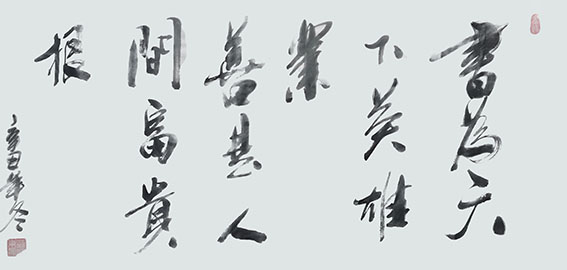 書為天
下英雄
業
善其人
間富貴
根
辛丑年冬